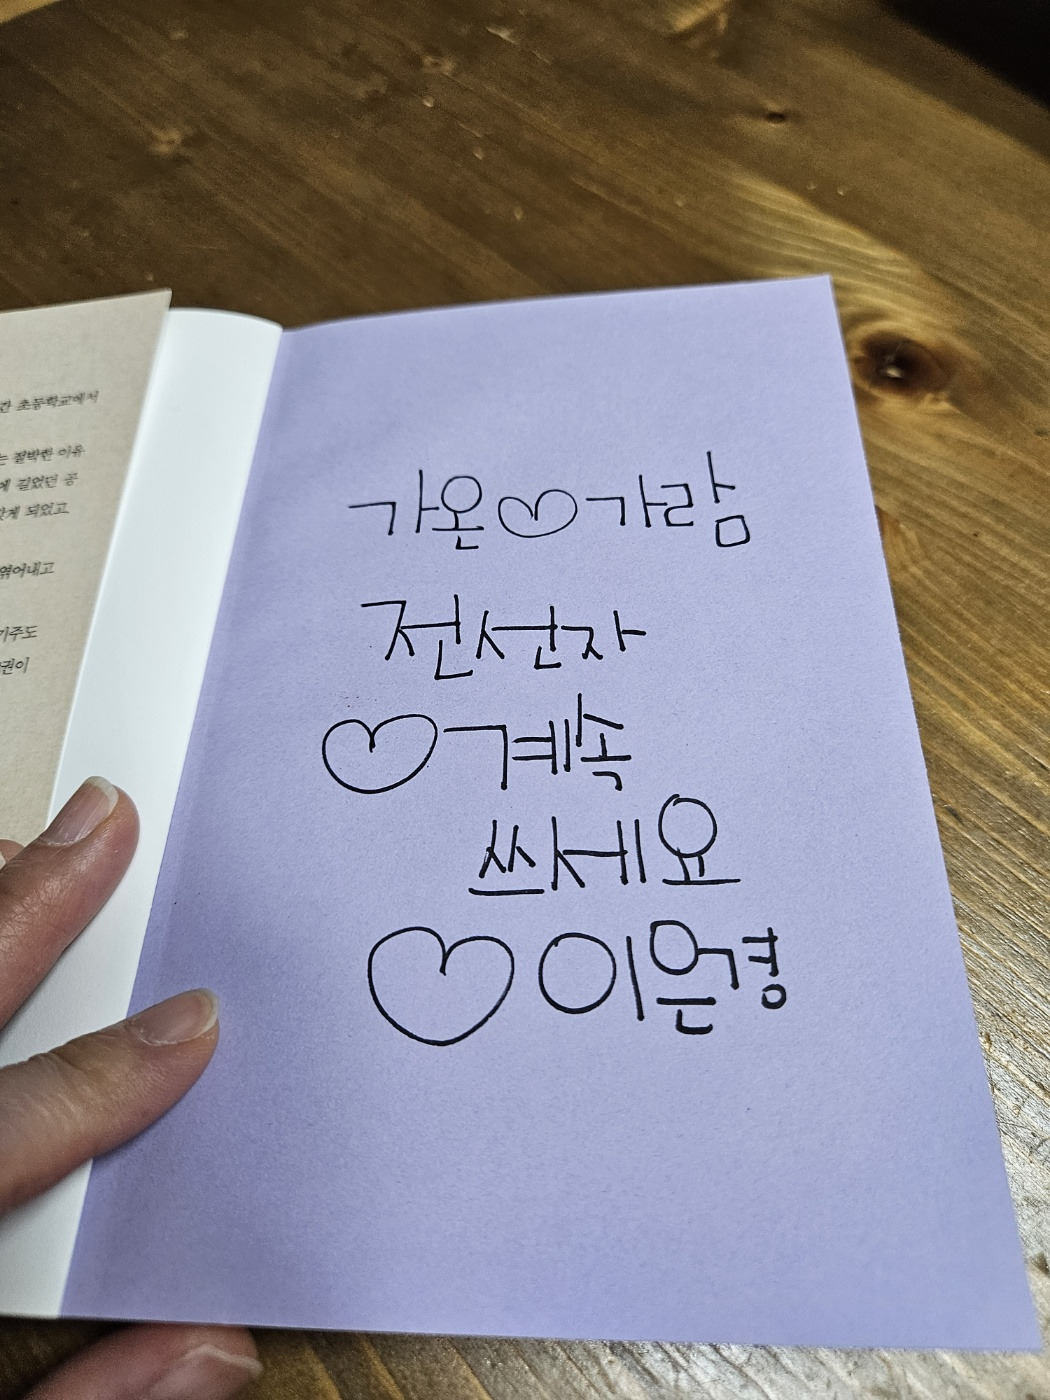 간 초등학교에서
는 절박한 이유
에 길었던 공
맞게 되었고
엮어내고
기주도
권이
가온♡가람
전선자
♡계속
쓰세요
♡이은경